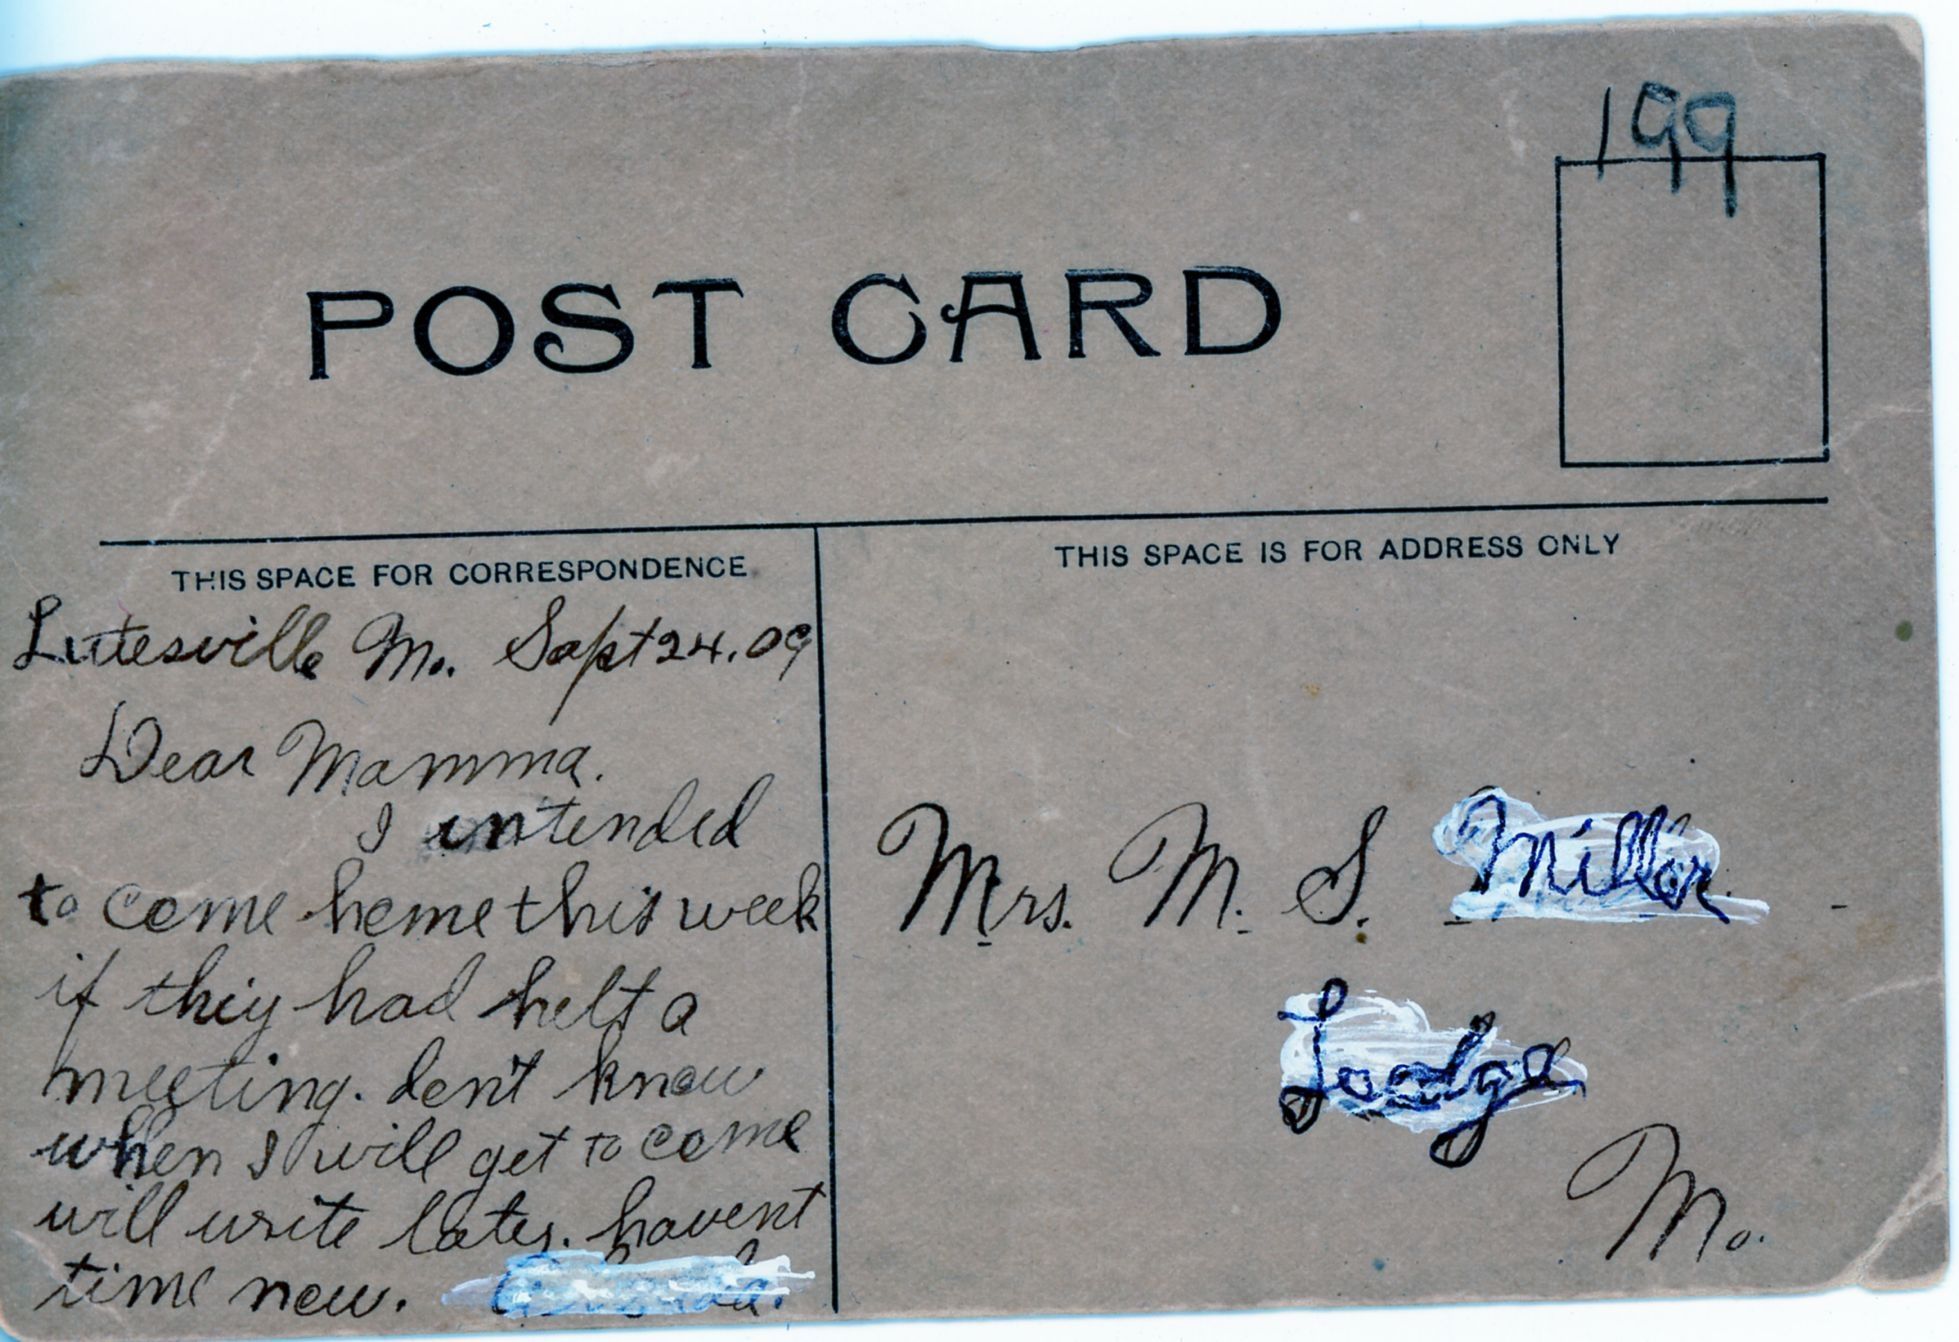 199
POST CARD
THIS SPACE FOR CORRESPONDENCE
THIS SPACE IS FOR ADDRESS ONLY
Lutesville Mo. Sept 24. 09
Dear Mamma.
I intended
to come home this week
if they had helt a
meeting. don't know
when I will get to come
will write later. havent
time now.
Mrs. M. S. Miller
Lodge
Mo.